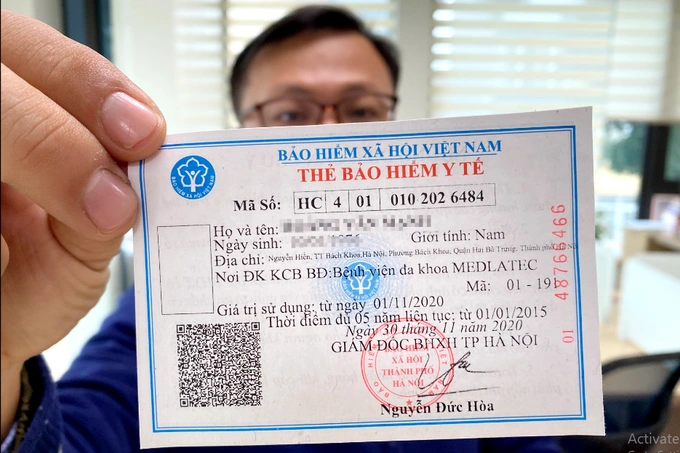 BẢO HIỂM XÃ HỘI VIỆT NAM
THẺ BẢO HIỂM Y TẾ
BẢO HIỂM XÃ HỘI VIỆT NAM
Mã Số: HC 4 01 010 202 6484
Họ và tên:
Ngày sinh: Giới tính: Nam
Địa chỉ: Nguyễn Hiền, TT Bách Khoa,Hà Nội, Phường Bách Khoa, Quận Hai Bà Trưng, Thành phố Hà Nội
Nơi ĐK KCB BĐ:Bệnh viện đa khoa MEDLATEC
Mã: 01 - 191
Giá trị sử dụng: từ ngày 01/11/2020
Thời điểm đủ 05 năm liên tục: từ 01/01/2015
Ngày 30 tháng 11 năm 2020
GIÁM ĐỐC BHXH TP HÀ NỘI
BẢO HIỂM
XÃ HỘI
THÀNH PHỐ
HÀ NỘI
Nguyễn Đức Hòa
01 48763466
Activate